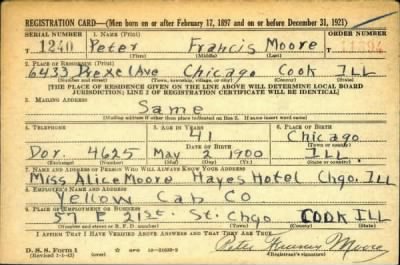 REGISTRATION CARD—(Men born on or after February 17, 1897 and on or before December 31, 1921)
SERIAL NUMBER 1. NAME (Print) ORDER NUMBER
T 1240 Peter Francis Moore
(First) (Middle) (Last)
2. PLACE OF RESIDENCE (Print)
6433 Drexel Ave Chicago Cook ILL
(Number and street) (Town, township, village, or city) (County) (State)
[THE PLACE OF RESIDENCE GIVEN ON THE LINE ABOVE WILL DETERMINE LOCAL BOARD
JURISDICTION; LINE 2 OF REGISTRATION CERTIFICATE WILL BE IDENTICAL]
3. MAILING ADDRESS
Same
[Mailing address if other than place indicated on line 2. If same insert word same]
4. TELEPHONE 5. AGE IN YEARS 6. PLACE OF BIRTH
41 Chicago
DATE OF BIRTH (Town or county)
Dor. 4625 May 2 1900 ILL.
(Exchange) (Number) (Mo.) (Day) (Yr.) (State or country)
7. NAME AND ADDRESS OF PERSON WHO WILL ALWAYS KNOW YOUR ADDRESS
Miss Alice Moore Hayes Hotel Chgo. ILL
8. EMPLOYER'S NAME AND ADDRESS
Yellow Cab Co
9. PLACE OF EMPLOYMENT OR BUSINESS
57 E 21st. St. Chgo COOK ILL
(Number and street or R. F. D. number) (Town) (County) (State)
I AFFIRM THAT I HAVE VERIFIED ABOVE ANSWERS AND THAT THEY ARE TRUE.
D. S. S. Form 1
(Revised 1-1-42) (over) Peter Francis Moore
(Registrant's signature)